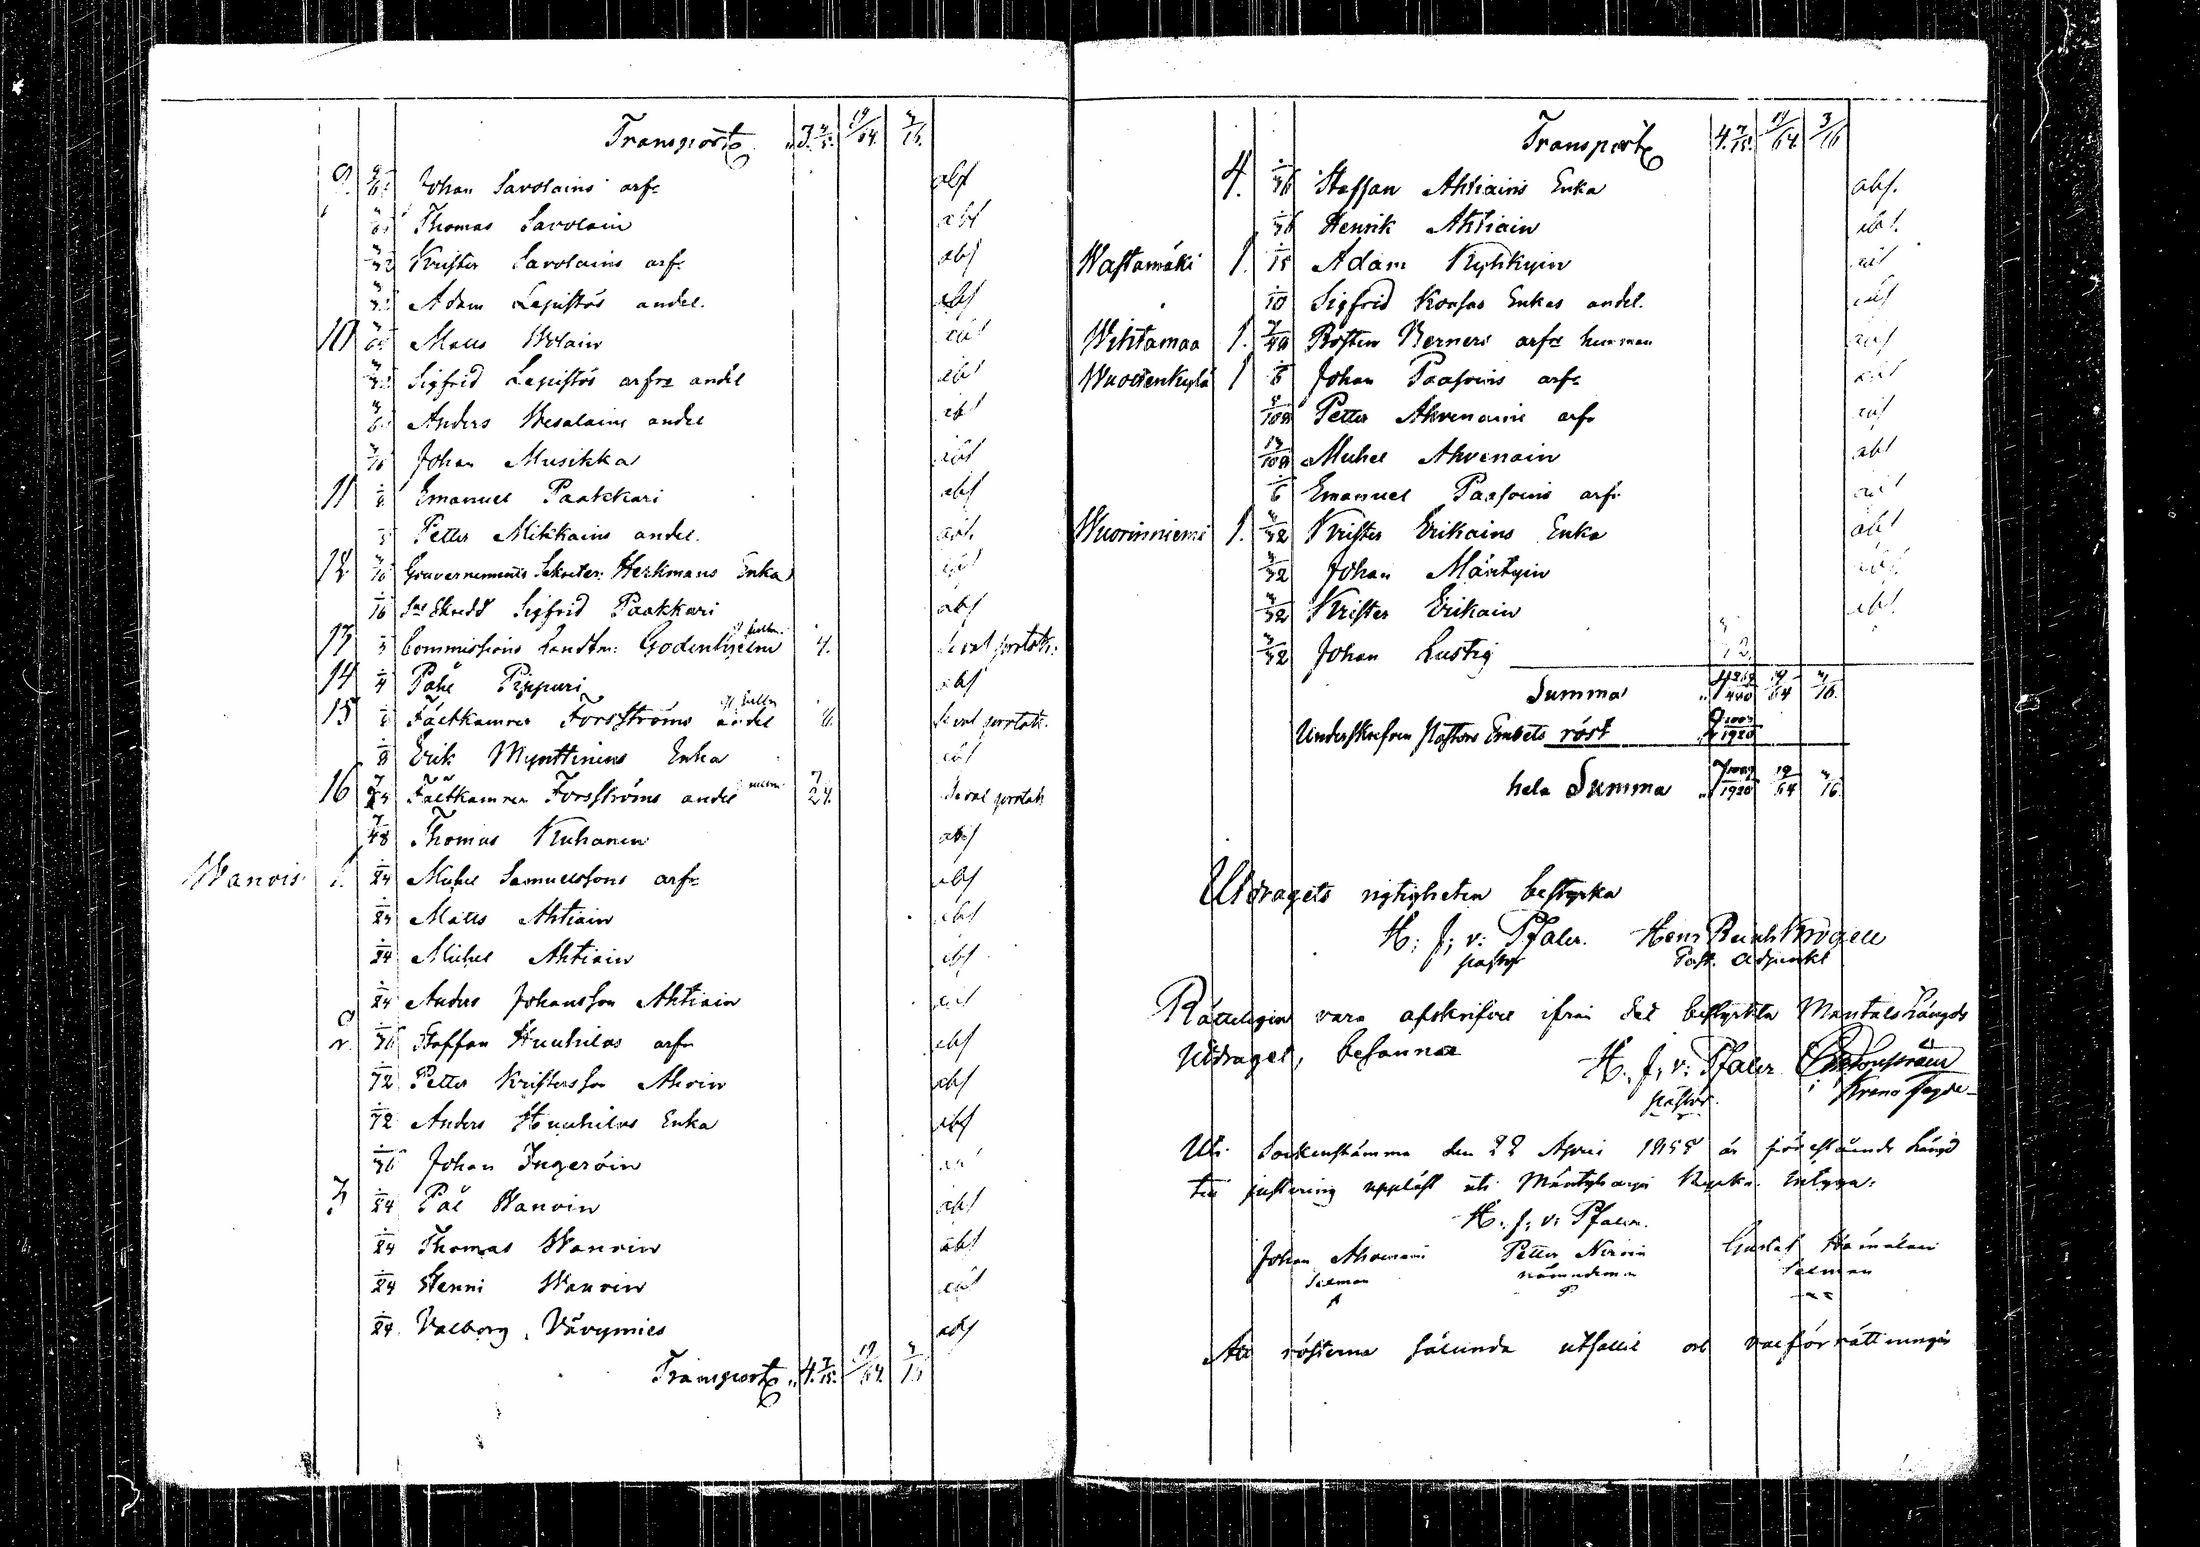 Transport
9 Johan Savolains arfr abs
Thomas Savolain abs
Krister Savolains arfr abs
Adam Lepistös andel. abs
10 Matts Wolain abs
Sigfrid Lepistös arfvr andel abs
Anders Wesalains andel abs
Johan Musikka abs
11 Emanuel Paakkari abs
Petter Mikkains andel. abs
12 Gouvernements Sekreter: Herkmans Enka abs
Sigfrid Paakkari abs
13 Commissions Landtm: Godenhjelm se val protok:
14 1/4 Påhl Pippuri abs
15 Fältkamrer Forsströms andel se val protok.
1/8 Erik Mynttinens Enka abs
16 Fältkamrer Forsströms andel 7/24. se val protok
7/48 Thomas Kuhanen abs
Wanvis 1. 1/24 Michel Samuelssons arfr abs
1/24 Matts Ahtiain abs
1/24 Michel Ahtiain abs
1/24 Anders Johansson Ahtiain abs
2. 1/36 Staffan Huuhilas arfr abs
1/72 Petter Kristersson Ahvin abs
1/72 Anders Huuhilas Enka abs
1/36 Johan Ingeröin abs
3. 1/24 Pål Wanvin abs
1/24 Thomas Wanvin abs
1/24 Henni Wanvin abs
1/24 Valborg Vävymies abs
Transport 4.7/15. 19/64. 3/16
Transport 4.7/15. 19/64. 3/16
4. 1/36 Staffan Ahtiains Enka abs.
1/36 Henrik Ahtiain abs.
Wastamäki 1. 1/15 Adam Kyhkyin abs
1/10 Sigfrid Konsas Enkas andel. abs
Wihtamaa 1. Berners arfvr hemman abs
Wuoctenkylä 1 1/6 Johan Paasoins arfr abs
Petter Ahvenains arfr abs
Michel Ahvenain abs
1/6 Emanuel Paasoins arfr abs
Wuorinniemi 1. 3/32 Krister Erikains Enka abs
3/32 Johan Mäntyin abs.
3/32 Krister Erikain abs.
3/32 Johan Lustig
Summa 19/64 3/16.
Underskrefven Pastors Embets röst
hela Summa 19/64 3/16.
Utdragets rigtigheten bestyrka
H: J: v: Pfaler. Krogell
pastor Past. Adjunkt
Rätteligen vara afskrifvit ifrån det bestyrkta Mantals Längds
Utdraget, besannar H. J. v: Pfaler
pastor. Krono fogde
Uti Sockenstämma den 22 April 1855 är föreståendе Längd
till justering uppläst uti Mäntyharju Kyrka. intyga:
H. J. v: Pfaler.
Johan Ahvenain Petter Nirvin Gustaf Hämäläin
Sexman nämndeman Sexman
Att rösterna sålunda utfallit vid valförrättningen